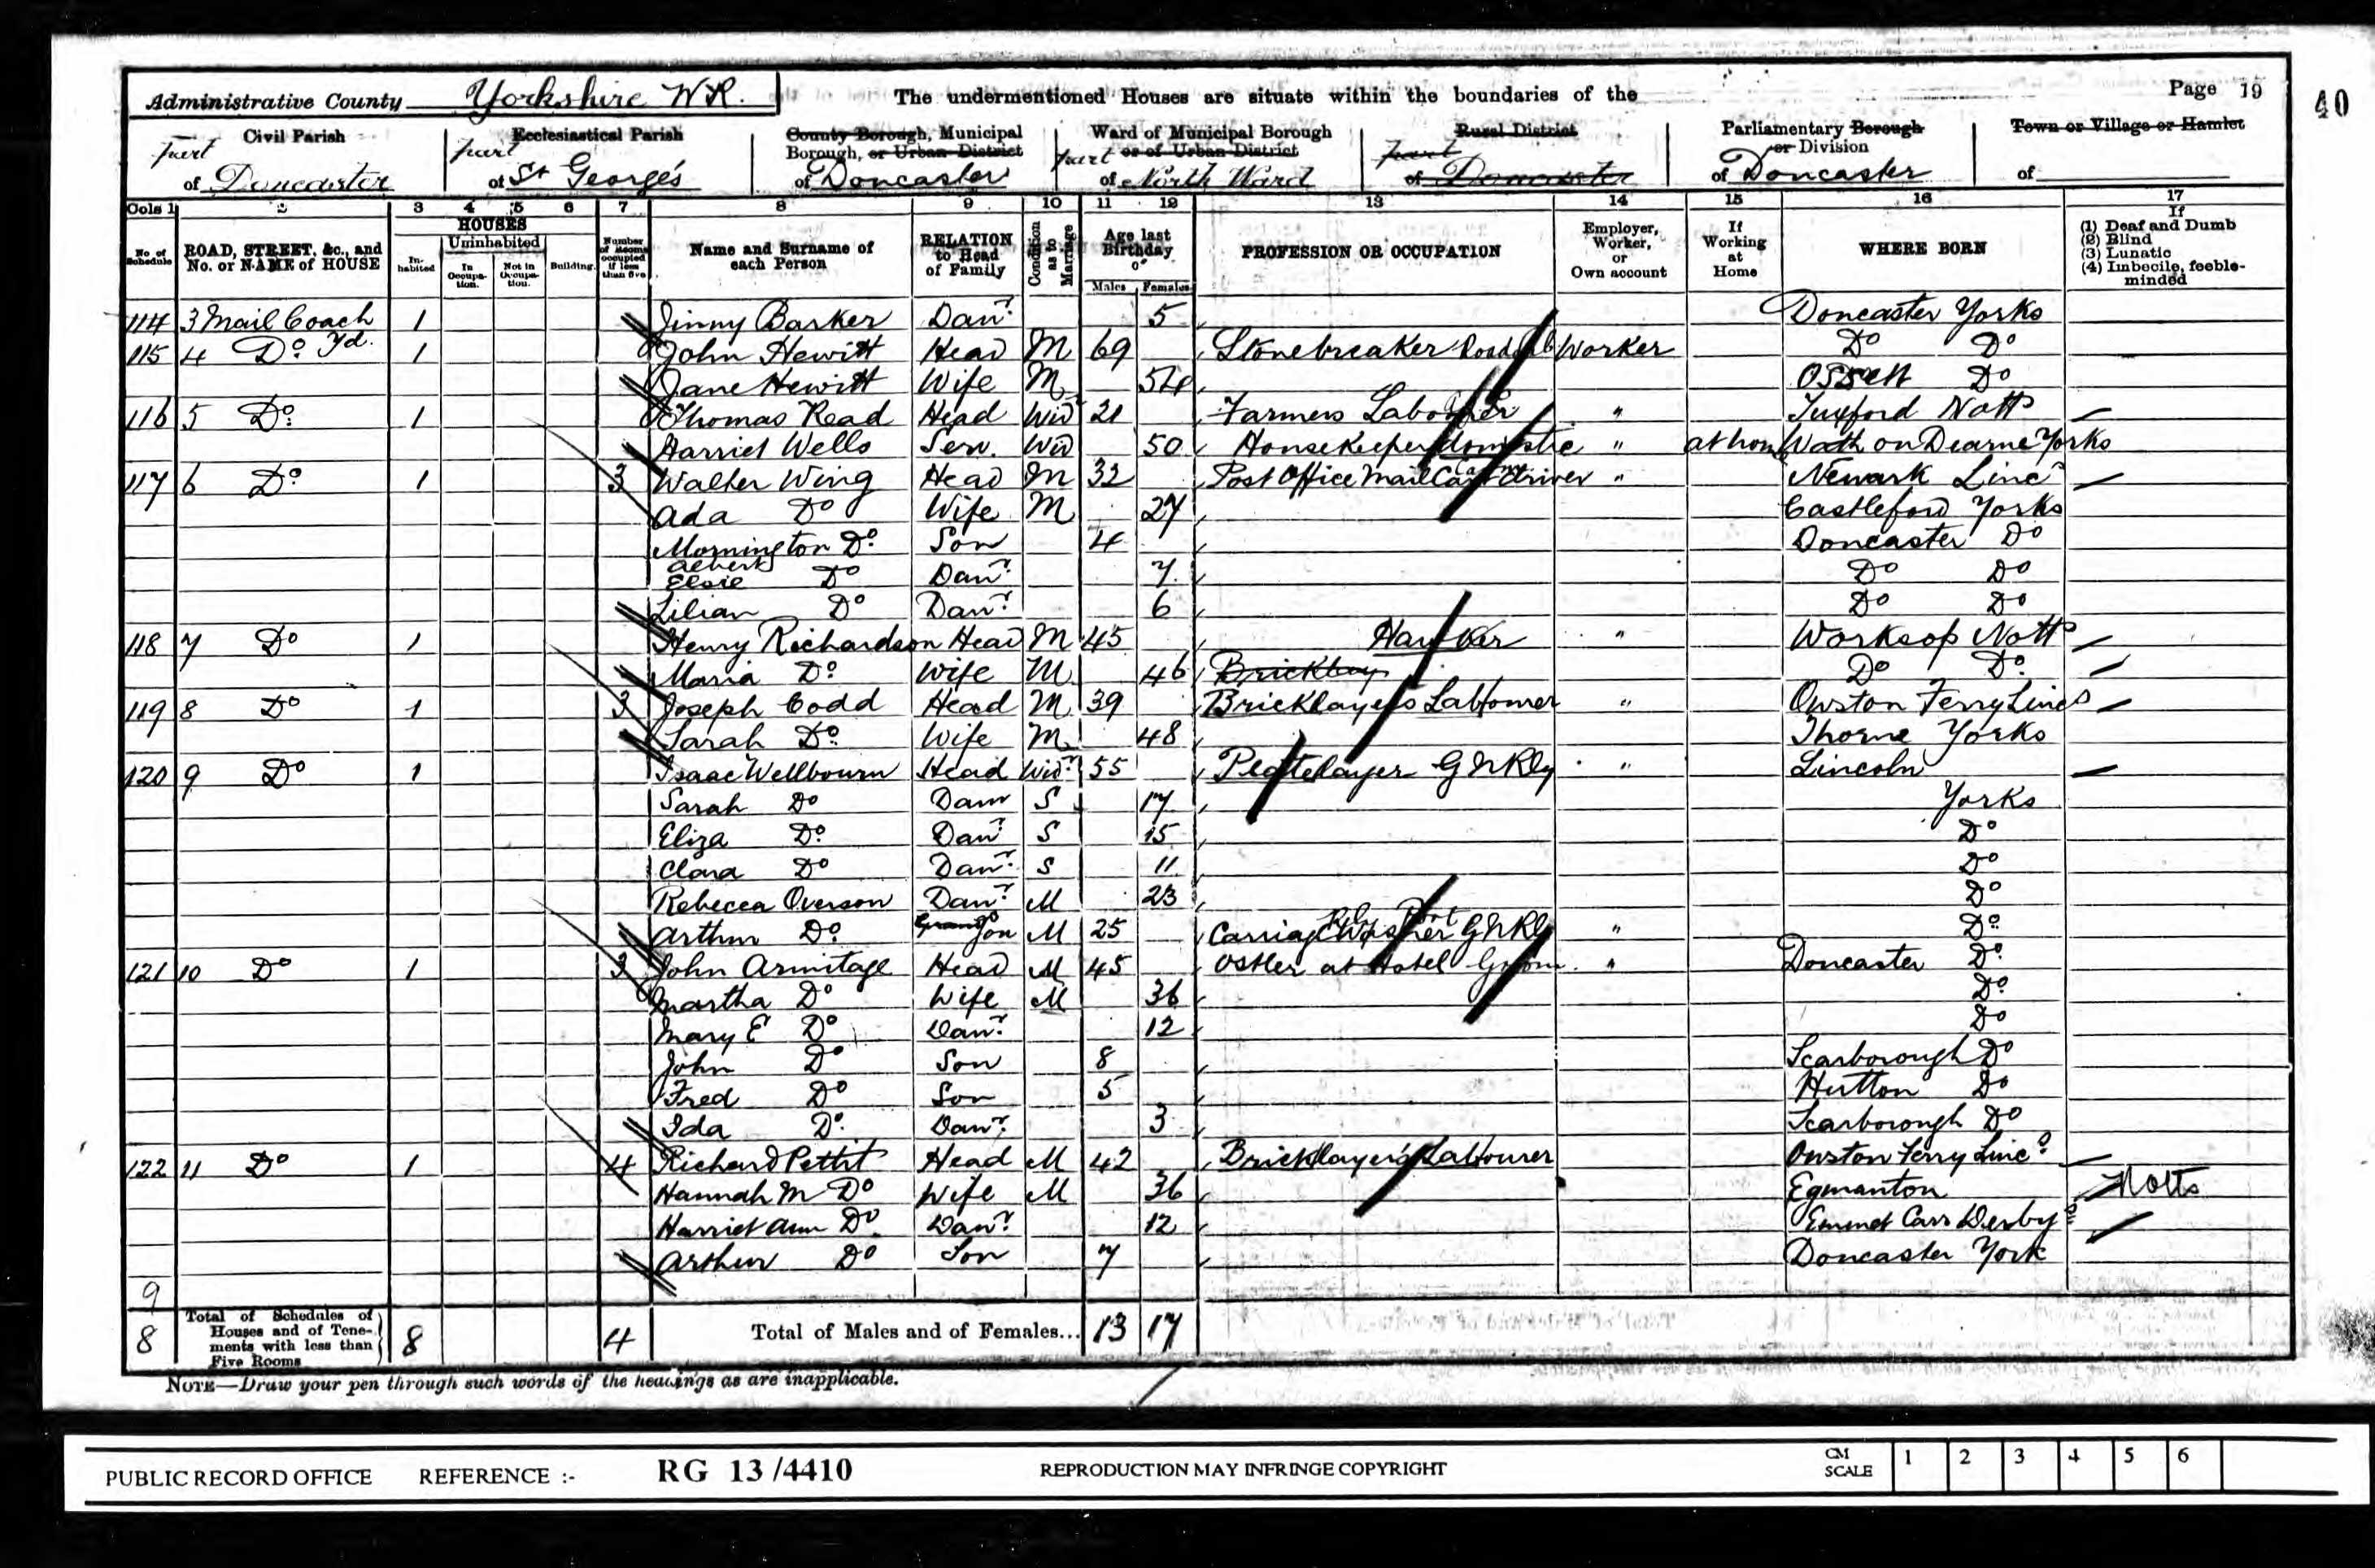 Administrative County Yorkshire W.R. The undermentioned Houses are situate within the boundaries of the Page 19
40
Civil Parish Ecclesiastical Parish County Borough, Municipal Borough, or Urban District Ward of Municipal Borough or of Urban District Rural District Parliamentary Borough or Division Town or Village or Hamlet
part of Doncaster part of St George's of Doncaster part of North Ward part of Doncaster of Doncaster of
Cols 1 2 3 4 5 6 7 8 9 10 11 12 13 14 15 16 17
No of Schedule ROAD, STREET, &c., and No. or NAME of HOUSE HOUSES Inhabited Uninhabited In Occupation. Not in Occupation. Building. Number of Rooms occupied if less than five Name and Surname of each Person RELATION to Head of Family Condition as to Marriage Age last Birthday of Males Females PROFESSION OR OCCUPATION Employer, Worker, or Own account If Working at Home WHERE BORN If (1) Deaf and Dumb (2) Blind (3) Lunatic (4) Imbecile, feeble-minded
114 3 Mail Coach 1 Jinny Barker Daur 5 Doncaster Yorks
115 4 Do Yd. 1 John Hewitt Head M 69 Stonebreaker Road Worker Do Do
Jane Hewitt Wife M 54 Ossett Do
116 5 Do 1 Thomas Read Head Wid 21 Farmers Labourer " Tuxford Notts
Harriet Wells Serv. Wid 50 Housekeeper domestic " at home Wath on Dearne Yorks
117 6 Do 1 3 Walter Wing Head M 32 Post Office Mail Cart driver " Newark Linc
Ada Do Wife M 27 Castleford Yorks
Mornington Do Son 4 Doncaster Do
Albert
Elsie Do Daur 7 Do Do
Lilian Do Daur 6 Do Do
118 7 Do 1 Henry Richardson Head M 45 Hawker " Worksop Notts
Maria Do Wife M 46 Bricklay Do Do
119 8 Do 1 3 Joseph Codd Head M 39 Bricklayers Labourer " Owston Ferry Lincs
Sarah Do Wife M 48 Thorne Yorks
120 9 Do 1 Isaac Wellbourn Head Widr 55 Platelayer G N Rly " Lincoln
Sarah Do Daur S 17 Yorks
Eliza Do Daur S 15 Do
Clara Do Daur S 11 Do
Rebecca Overson Daur M 23 Do
Arthur Do Grand Son M 25 Carriage Washer G N Rly " Do
121 10 Do 1 3 John Armitage Head M 45 Ostler at Hotel Groom " Doncaster Do
Martha Do Wife M 36 Do
Mary E Do Daur 12 Do
John Do Son 8 Scarborough Do
Fred Do Son 5 Hutton Do
Ida Do Daur 3 Scarborough Do
122 11 Do 1 4 Richard Pettit Head M 42 Bricklayer's Labourer Owston Ferry Linc
Hannah M Do Wife M 36 Egmanton Notts
Harriet Ann Do Daur 12 Emmet Carr Derby
Arthur Do Son 7 Doncaster York
9
8 Total of Schedules of Houses and of Tenements with less than Five Rooms 8 4 Total of Males and of Females... 13 17
NOTE—Draw your pen through such words of the headings as are inapplicable.
PUBLIC RECORD OFFICE REFERENCE :- RG 13/4410 REPRODUCTION MAY INFRINGE COPYRIGHT CM SCALE 1 2 3 4 5 6